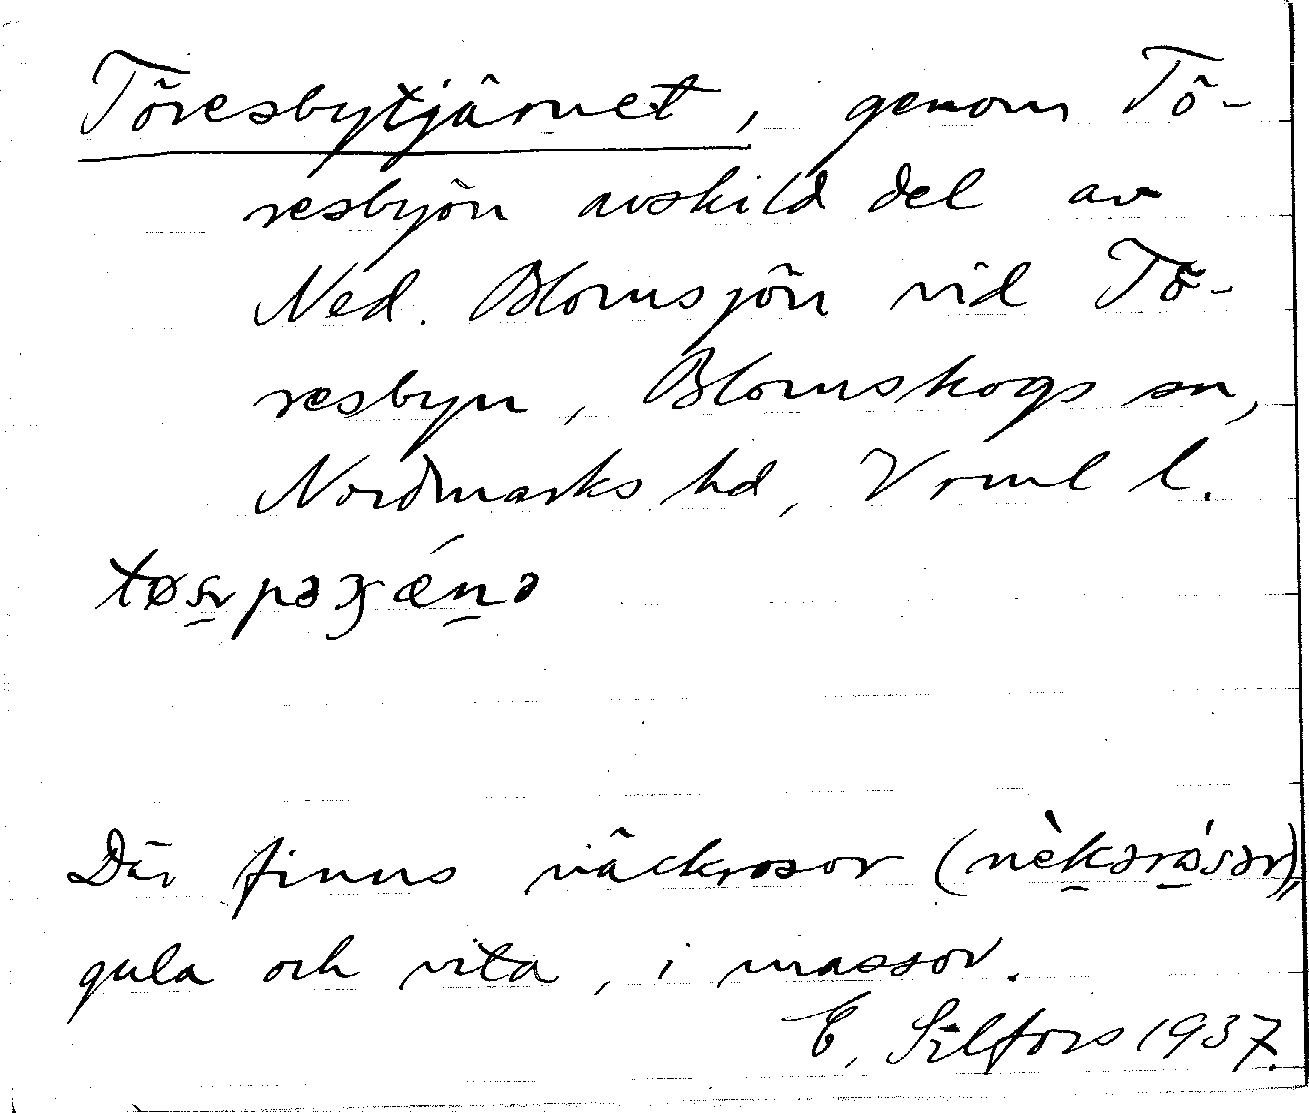 Töresbytjärnet, genom Tö-
resbyön avskild del av
Ned. Blomsjön vid Tö-
resbyn, Blomskogs sn,
Nordmarks hd, Vrml l.
Där finns näckrosor
gula och vita, i massor.
E. Silfors 1937.